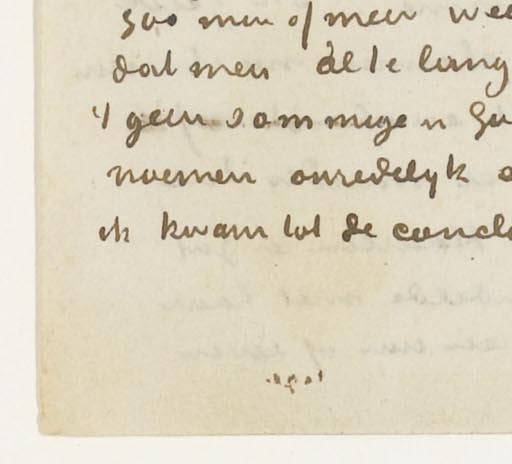 zoo min of meer wee
dat men al te lang
't geen sommigen zu
noemen onredelyk o
ik kwam tot de conclu